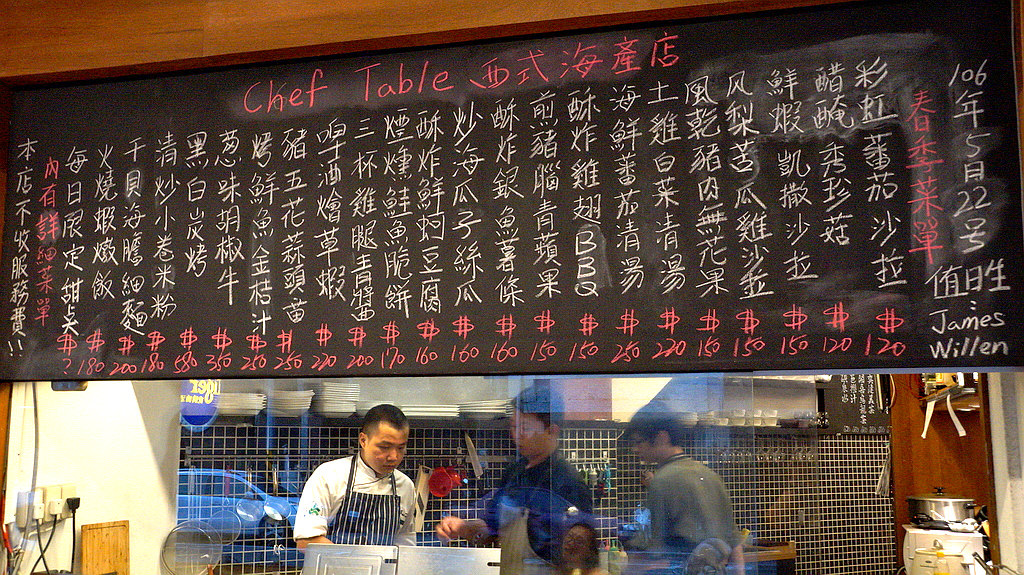 Chef Table 西式海產店
106年5日22号
值日生:
James
Willen
春季菜單
彩虹蕃茄沙拉 $120
醋醃秀珍菇 $120
鮮蝦凱撒沙拉 $150
风梨苦瓜雞沙拉 $150
風乾豬肉無花果 $150
土雞白菜清湯 $220
海鮮蕃茄清湯 $250
酥炸雞翅BBQ $150
煎豬腦青蘋果 $150
酥炸銀魚薯條 $160
炒海瓜子絲瓜 $160
酥炸鮮蚵豆腐 $160
煙燻鮭魚脆餅 $170
三杯雞腿青醬 $200
啤酒燴草蝦 $220
豬五花蒜頭苗 $250
烤鮮魚金桔汁 $250
葱味胡椒牛 $350
黑白炭烤 $580
清炒小卷米粉 $180
干貝海膽細麵 $200
火燒蝦燉飯 $180
每日限定甜点 $?
內有詳細菜單
本店不收服務費!!